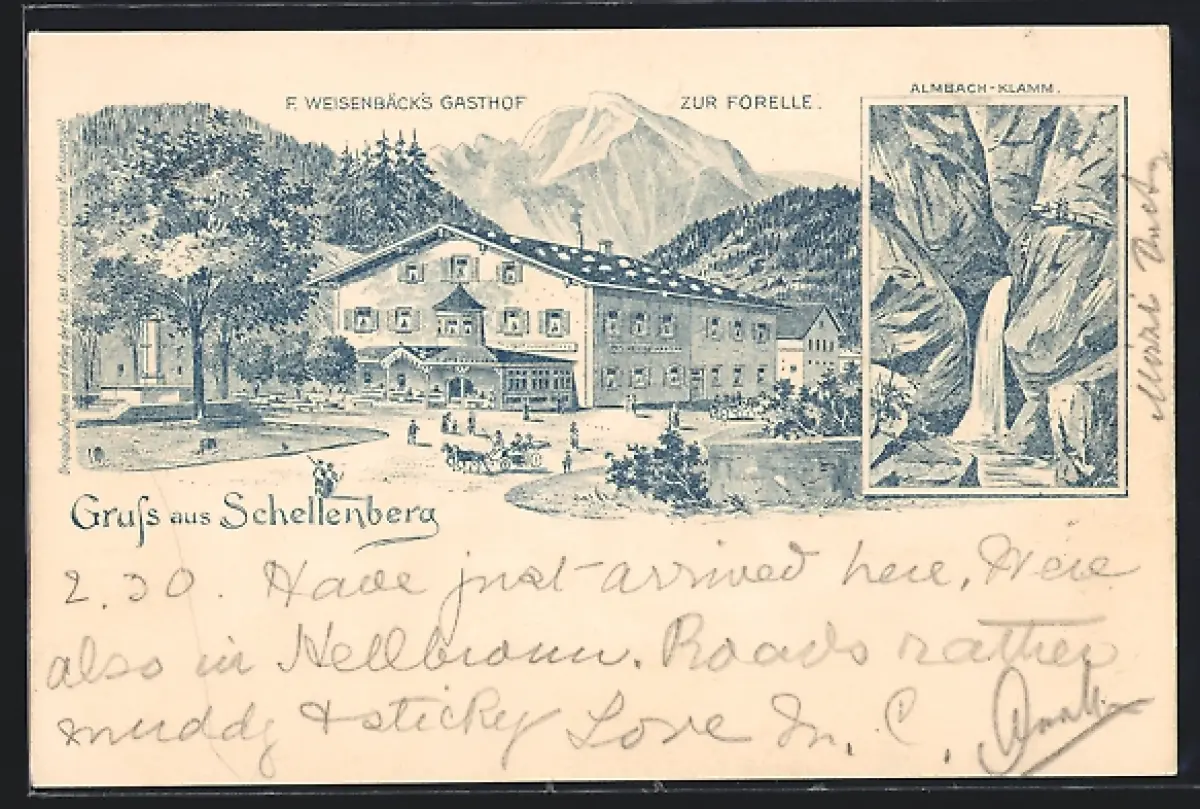 F. WEISENBÄCK'S GASTHOF ZUR FORELLE.
ALMBACH-KLAMM.
Gruſs aus Schellenberg
2.30. Have just arrived here, Were
also in Hellbronn. Roads rather
muddy & sticky Love M. C.
Mizzi